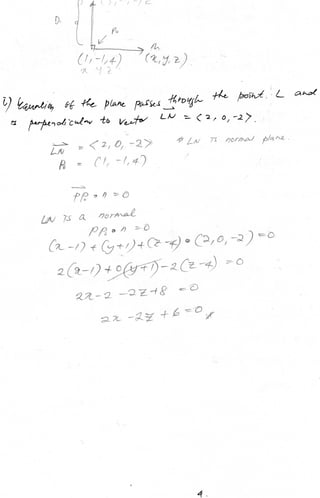 P₀
(1,-1,4) (x,y,z)
x y z
i) Equation of the plane passes through the point L and
is perpendicular to vector LN = <2, 0, -2>.
LN = <2, 0, -2> * LN is normal plane.
P₀ = (1, -1, 4)
PP₀ • n = 0
LN is a normal
PP₀ • n = 0
(x-1) + (y+1) + (z-4) • (2, 0, -2) = 0
2(x-1) + 0(y+1) - 2(z-4) = 0
2x - 2 - 2z + 8 = 0
2x - 2z + 6 = 0
4.